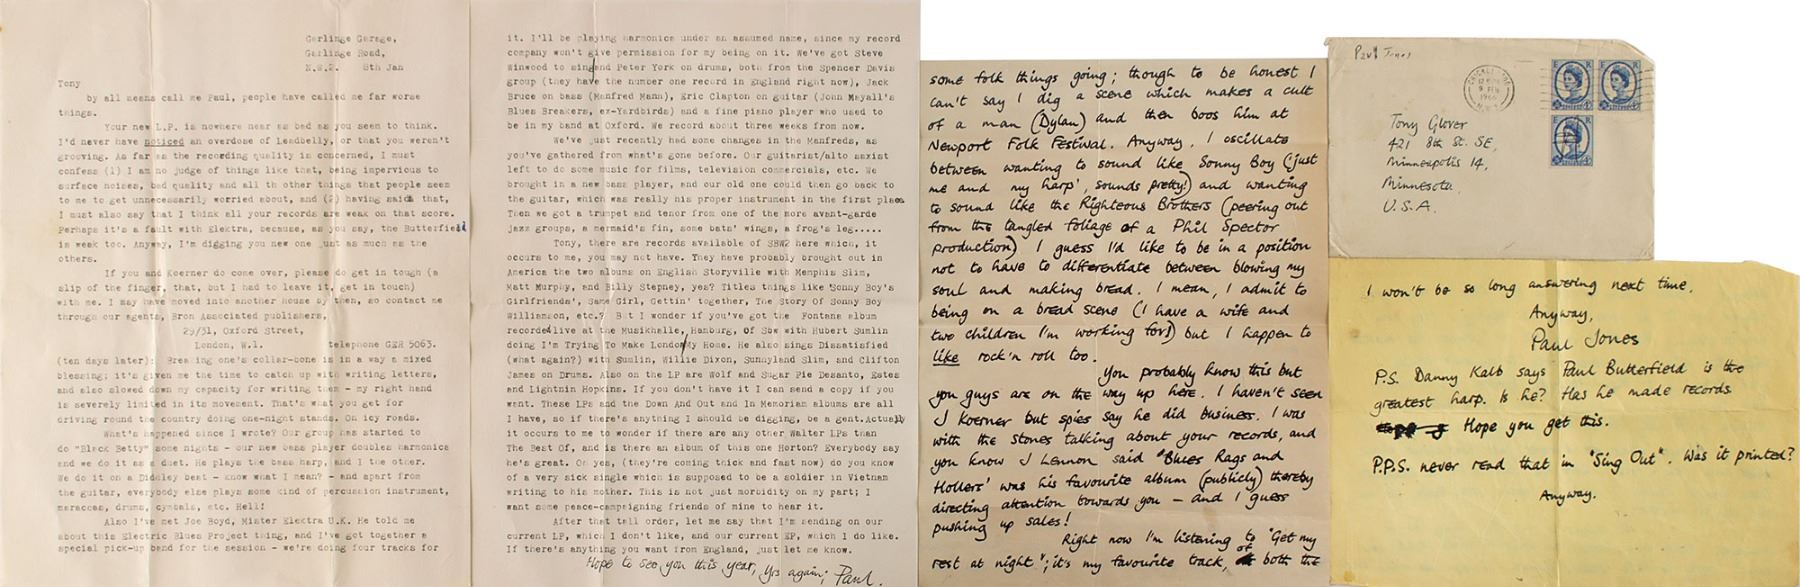 Garlinge Garage,
Garlinge Road,
N.W.2. 8th Jan
Tony
by all means call me Paul, people have called me far worse
things.
Your new L.P. is nowhere near as bad as you seem to think.
I'd never have noticed an overdose of Leadbelly, or that you weren't
grooving. As far as the recording quality is concerned, I must
confess (1) I am no judge of things like that, being impervious to
surface noises, bad quality and all th other things that people seem
to me to get unnecessarily worried about, and (2) having said that,
I must also say that I think all your records are weak on that score.
Perhaps it's a fault with Elektra, because, as you say, the Butterfield
is weak too. Anyway, I'm digging you new one just as much as the
others.
If you and Koerner do come over, please do get in tough (a
slip of the finger, that, but I had to leave it, get in touch)
with me. I may have moved into another house by then, so contact me
through our agents, Bron Associated publishers,
29/31, Oxford Street,
London, W.1. telephone GER 5063.
(ten days later): Breaking one's collar-bone is in a way a mixed
blessing; it's given me the time to catch up with writing letters,
and also slowed down my capacity for writing them - my right hand
is severely limited in its movement. That's what you get for
driving round the country doing one-night stands. On icy roads.
What's happened since I wrote? Our group has started to
do "Black Betty" some nights - our new bass player doubles harmonica
and we do it as a duet. He plays the bass harp, and I the other.
We do it on a Diddley beat - know what I mean? - and apart from
the guitar, everybody else plays some kind of percussion instrument,
maraccas, drums, cymbals, etc. Hell!
Also I've met Joe Boyd, Mister Elektra U.K. He told me
about this Electric Blues Project thing, and I've got together a
special pick-up band for the session - we're doing four tracks for
it. I'll be playing harmonica under an assumed name, since my record
company won't give permission for my being on it. We've got Steve
Winwood to sing and Peter York on drums, both from the Spencer Davis
group (they have the number one record in England right now), Jack
Bruce on bass (Manfred Mann), Eric Clapton on guitar (John Mayall's
Blues Breakers, ex-Yardbirds) and a fine piano player who used to
be in my band at Oxford. We record about three weeks from now.
We've just recently had some changes in the Manfreds, as
you've gathered from what's gone before. Our guitarist/alto saxist
left to do some music for films, television commercials, etc. We
brought in a new bass player, and our old one could then go back to
the guitar, which was really his proper instrument in the first place.
Then we got a trumpet and tenor from one of the more avant-garde
jazz groups, a mermaid's fin, some bats' wings, a frog's leg.....
Tony, there are records available of SBW2 here which, it
occurs to me, you may not have. They have probably brought out in
America the two albums on English Storyville with Memphis Slim,
Matt Murphy, and Billy Stepney, yes? Titles things like 'Sonny Boy's
Girlfriends', Same Girl, Gettin' together, The Story Of Sonny Boy
Williamson, etc.? But I wonder if you've got the Fontana album
recorded live at the Musikhalle, Hamburg, Of Sbw with Hubert Sumlin
doing I'm Trying To Make London My Home. He also sings Dissatisfied
(what again?) with Sumlin, Willie Dixon, Sunnyland Slim, and Clifton
James on Drums. Also on the LP are Wolf and Sugar Pie Desanto, Estes
and Lightnin Hopkins. If you don't have it I can send a copy if you
want. These LPs and the Down And Out and In Memorian albums are all
I have, so if there's anything I should be digging, be a gent. Actually
it occurs to me to wonder if there are any other Walter LPs than
The Best Of, and is there an album of this one Horton? Everybody say
he's great. Oh yes, (they're coming thick and fast now) do you know
of a very sick single which is supposed to be a soldier in Vietnam
writing to his mother. This is not just morbidity on my part; I
want some peace-campaigning friends of mine to hear it.
After that tall order, let me say that I'm sending on our
current LP, which I don't like, and our current EP, which I do like.
If there's anything you want from England, just let me know.
Hope to see you this year, yrs again, Paul.
some folk things going; though to be honest I
can't say I dig a scene which makes a cult
of a man (Dylan) and then boos him at
Newport Folk Festival. Anyway. I oscillate
between wanting to sound like Sonny Boy ('just
me and my harp', sounds pretty!) and wanting
to sound like the Righteous Brothers (peering out
from the tangled foliage of a Phil Spector
production) I guess I'd like to be in a position
not to have to differentiate between blowing my
soul and making bread. I mean, I admit to
being on a bread scene (I have a wife and
two children I'm working for!) but I happen to
like rock'n roll too.
You probably know this but
you guys are on the way up here. I haven't seen
J Koerner but spies say he did business. I was
with the Stones talking about your records, and
you know J Lennon said "Blues Rags and
Hollers' was his favourite album (publicly) thereby
directing attention towards you – and I guess
pushing up sales!
Right now I'm listening to "Get my
rest at night"; it's my favourite track, of both the
Paul Jones
CRICKLEWOOD
9 FEB
1966
N.W.2
E R
E R
E R
Tony Glover
421 8th St. SE,
Minneapolis 14,
Minnesota.
U.S.A.
I won't be so long answering next time.
Anyway,
Paul Jones
P.S. Danny Kalb says Paul Butterfield is the
greatest harp. Is he? Has he made records
Hope you get this.
P.P.S. never read that in "Sing Out". Was it printed?
Anyway.